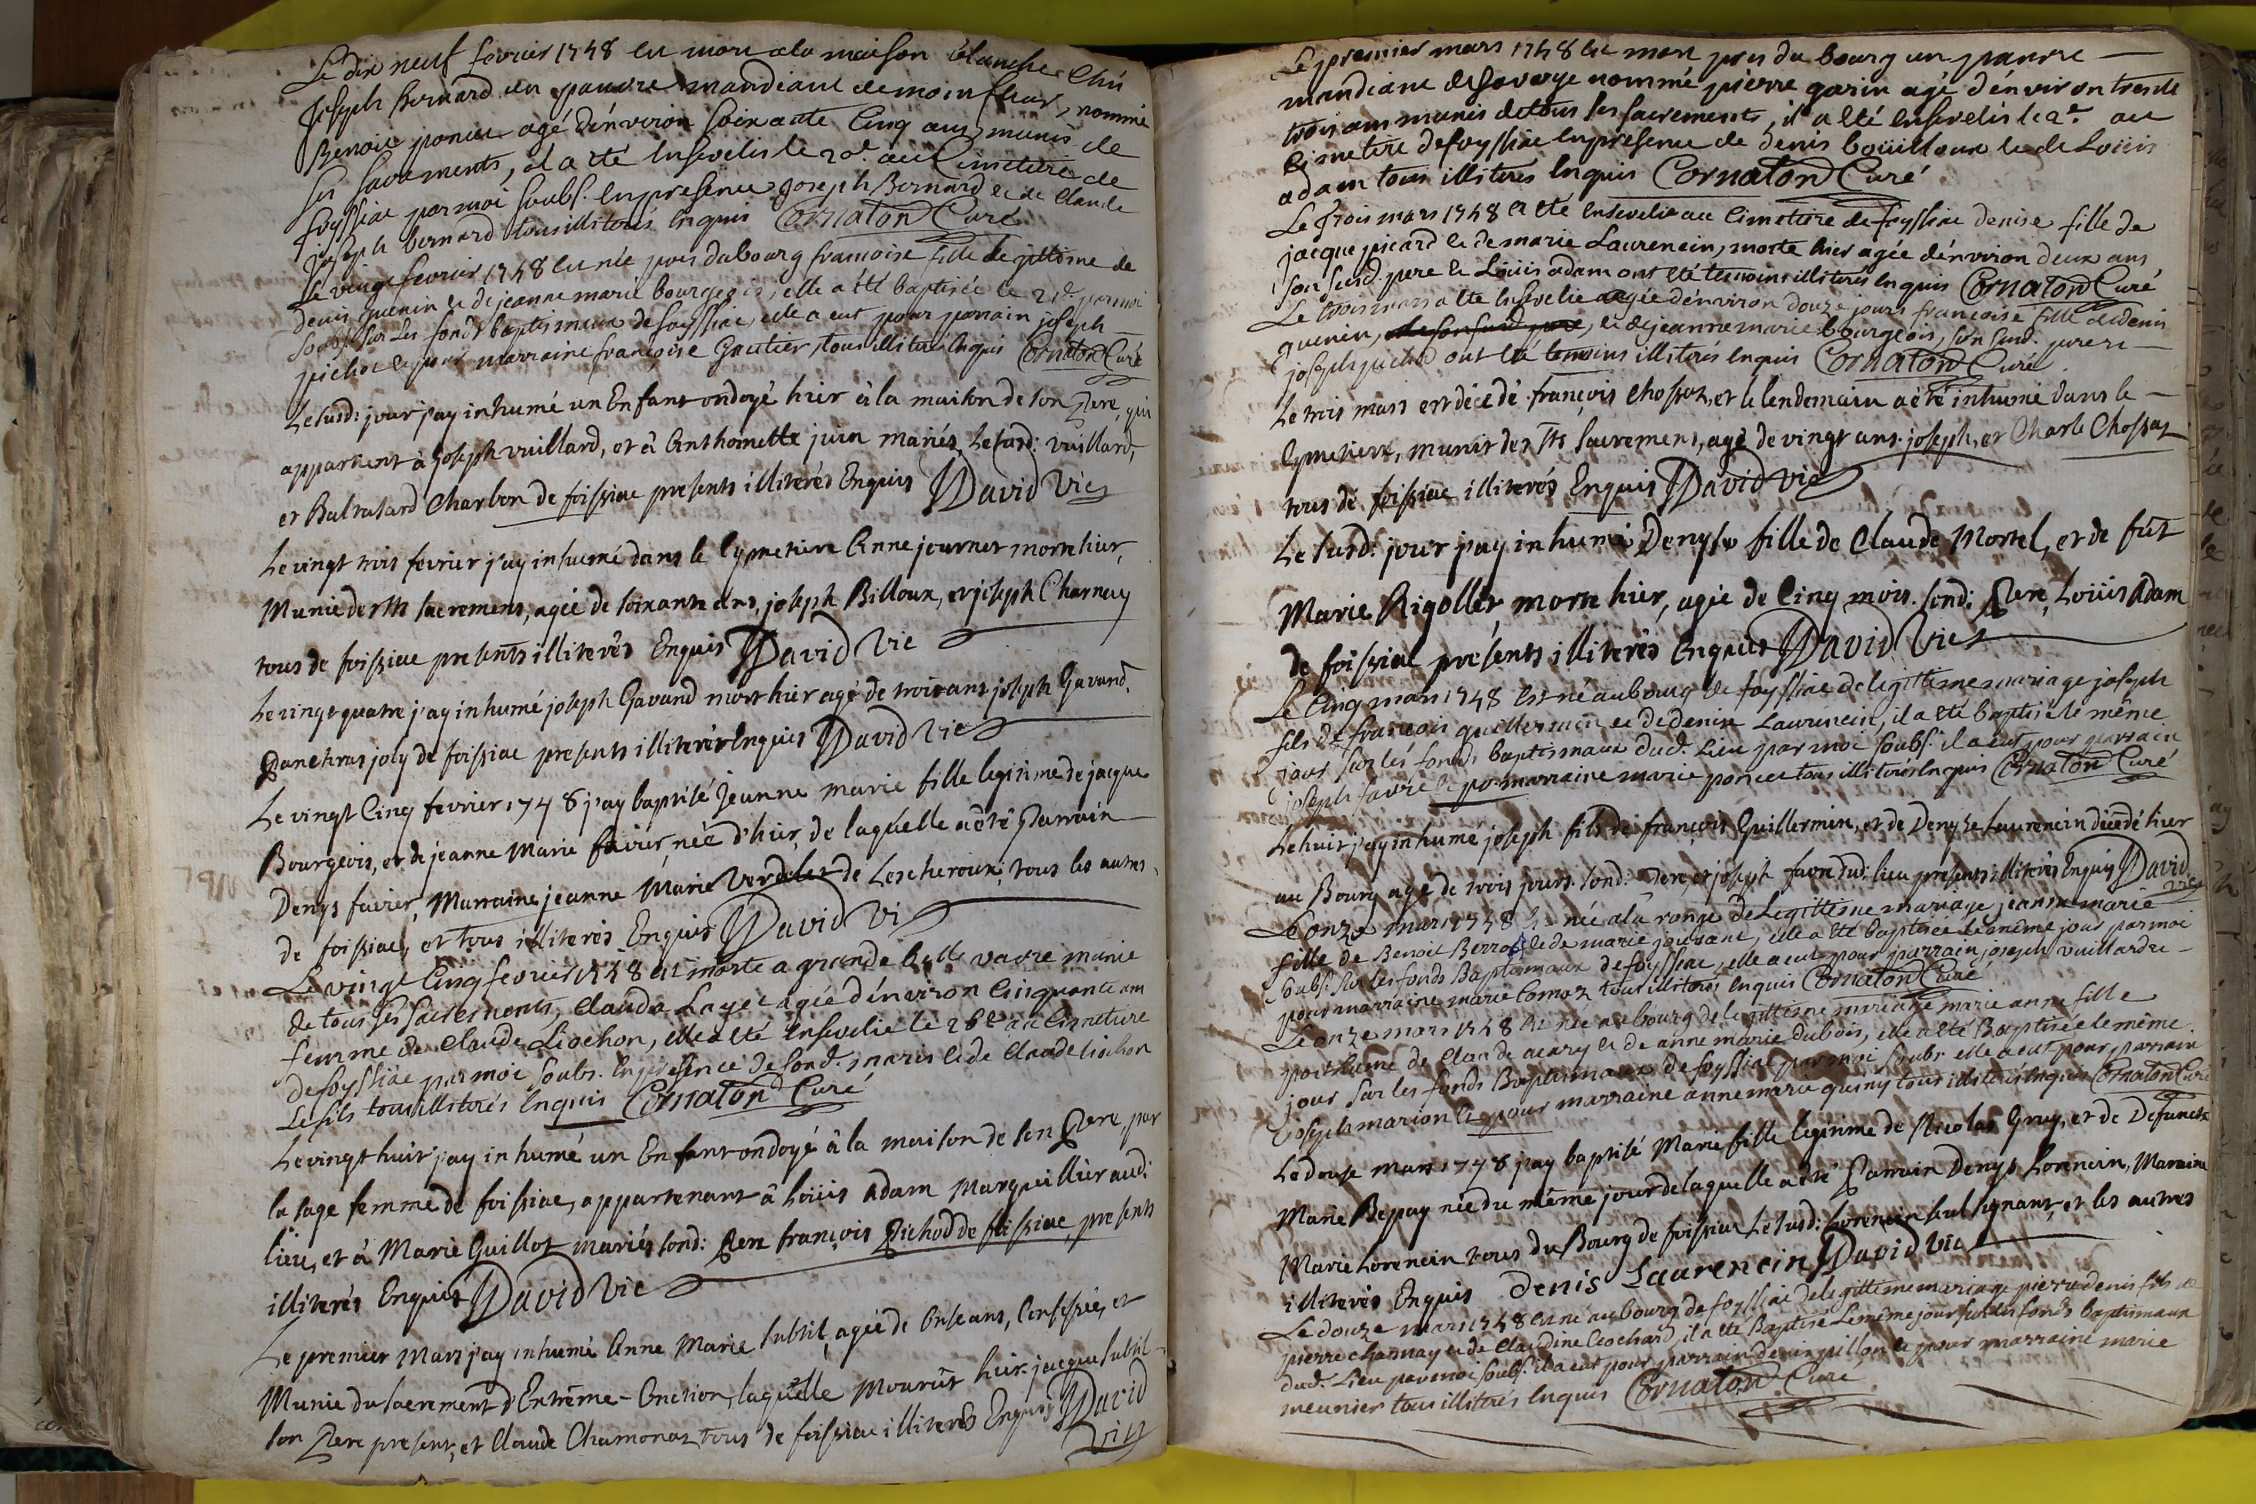 Le dix neuf fevrier 1748 est mort a la maison blanche Ché
Joseph Bernard un pauvre mandiant de moinfleur, nommé
Benoit poncet agé d'environ soixante Cinq ans munis de
ses sacrements, il a été Ensevelis le 20e. au Cimetiere de
foyssiac par moi soubs. En presence Joseph Bernard et de Claude
joseph bernard tous illiterés Enquis Cornaton Curé
Le vingt fevrier 1748 est née pres du bourg francoise fille legittime de
denis quenin et de jeanne marie bourgeois, elle a été baptisée le 21e. par moi
soubs. sur les fonds baptismaux de foyssiac, elle a eut pour parrain joseph
pichod et pour marraine françoise Gautier, tous illiterés Enquis Cornaton Curé
Le susd: jour j'ay inhumé un Enfant ondoyé hier à la maison de son Pere, qui
appartient à Joseph vuillard, et à Anthomette juin mariés, Le susd: vuillard,
et Baltasard Charbon de foissiac presents illiterés Enquis David Vic
Le vingt trois fevrier j'ay inhumé dans le Cymetiere Anne journet morte hier,
Munie des Sts sacremens, agée de soixante ans, joseph Billoux, et joseph Charnay
tous de foissiac presents illiterés Enquis David Vic
Le vingt quatre j'ay inhumé joseph Gavand mort hier agé de trois ans joseph Gavand,
Pancthras joly de foissiac presents illiterés Enquis David Vic
Le vingt Cinq fevrier 1748 j'ay baptisé Jeanne marie fille legitime de jacque
Bourgeois, et de jeanne Marie favier née d'hier, de laquelle a été Parrain
Denys favier, Marraine jeanne Marie Verdelet de Lescheroux; tous les autres
de foissiac, et tous illiterés Enquis David Vic
Le vingt Cinq fevrier 1748 est morte a grande Colle vavre munie
de tous ses sacrements, Clauda Layet agée d'environ Cinquante ans
femme de Claude Liochon, elle a été Ensevelie le 26e au Cimetiere
de foyssiac par moi soubs. En presence de sond. maris et de Claude liochon
Le fils tous illiterés Enquis Cornaton Curé
Le vingt huit j'ay inhumé un Enfant ondoyé à la maison de son Pere, par
la sage femme de foissiac, appartenant à Loüis Adam Marguillier aud:
lieu, et à Marie Guillot mariés sond: Pere françois Pichod de foissiac, presents
illiterés Enquis David Vic
Le premier Mars j'ay inhumé Anne Marie subtil, agée de Onse ans, Confessée, et
Munie du sacrement d'Extrême-Onction, laquelle mourût hier. jacque subtil
son Pere present, et Claude Chamonaz tous de foissiac illiterés Enquis David
Vic
Le premier mars 1748 est mort pres du bourg un pauvre
mandiant de savoye nommé pierre garin agé d'environ trente
trois ans munis de tous ses sacrements, il a été Ensevelis le 2e. au
Cimetiere de foyssiac En présence de denis boüilloux et de Loüis
adam tous illiterés Enquis Cornaton Curé
Le trois mars 1748 a été Ensevelie au Cimetiere de foyssiac denise fille de
jacque picard et de marie Laurencin, morte hier agée d'environ deux ans
son susd. pere et Loüis adam ont été temoins illiterés Enquis Cornaton Curé
Le trois mars a été Ensevelie agée d'environ douze jours francoise fille de denis
quenin, et de jeanne marie bourgeois, son susd. pere et
joseph pichod ont été temoins illiterés Enquis Cornaton Curé
Le trois mars est décedé françois Chossat, et le lendemain a été inhumé dans le
Cymetiere, munit des Sts Sacremens, agé de vingt ans. joseph, et Charle Chossat
tous de foissiac illiterés Enquis David Vic
Le susd: jour j'ay inhumé Denyse fille de Claude Mortel, et de fût
Marie Rigollet, morte hier, agée de Cinq mois. sond: Pere, Loüis Adam
de foissiac présents illiterés Enquis David Vic
Le Cinq mars 1748 Est né au bourg de foyssiac de legittime mariage joseph
fils de francois guillermin et de denise Laurencin, il a été baptisé le même
jour sur les fonds baptismaux dud. Lieu par moi soubs. il a eut pour parrain
joseph favre et pr marraine marie poncet tous illiterés Enquis Cornaton Curé
Le huit j'ay inhumé joseph fils de françois Guillermin, et de Denyse Laurencin décedé hier
au Bourg agé de trois jours. sond: Pere et joseph favre dud: lieu presents illiterés Enquis David
Vic
Le onze mars 1748 Est née a la range de Legittime mariage jeanne marie
fille de Benoit et de marie , elle a été baptisée le même jour par moi
soubs. sur les fonds Baptismaux de foyssiac, elle a eut pour parrain joseph vuillard et
pour marraine marie Comoz tous illiterés Enquis Cornaton Curé
Le onze mars 1748 Est née au bourg de legittime mariage marie anne fille
posthume de Claude et de anne marie dubois, elle a été Baptisée le même
jour sur les fonds Baptismaux de foyssiac par moi soubs. elle a eut pour parrain
joseph marion et pour marraine anne marie quiny tous illiterés Enquis Cornaton Curé
Le douse mars 1748 j'ay baptisé Marie fille legitime de Nicolas Gruy, et de Defuncte
Marie Bepay née du même jour de laquelle a été Parrain Denys Lorencin, Marraine
Marie Lorencin tous du Bourg de foissiac Le susd: Lorencin seul signant, et les autres
illiterés Enquis Denis Laurencin David Vic
Le douze mars 1748 est né au bourg de foyssiac de legittime mariage pierre denis fils de
pierre charnay et de Claudine Liochard, il a été Baptisé le même jour sur les fonds baptismaux
dud. Lieu par moi soubs. il a eut pour parrain denis pillon et pour marraine marie
meunier tous illiterés Enquis Cornaton Curé